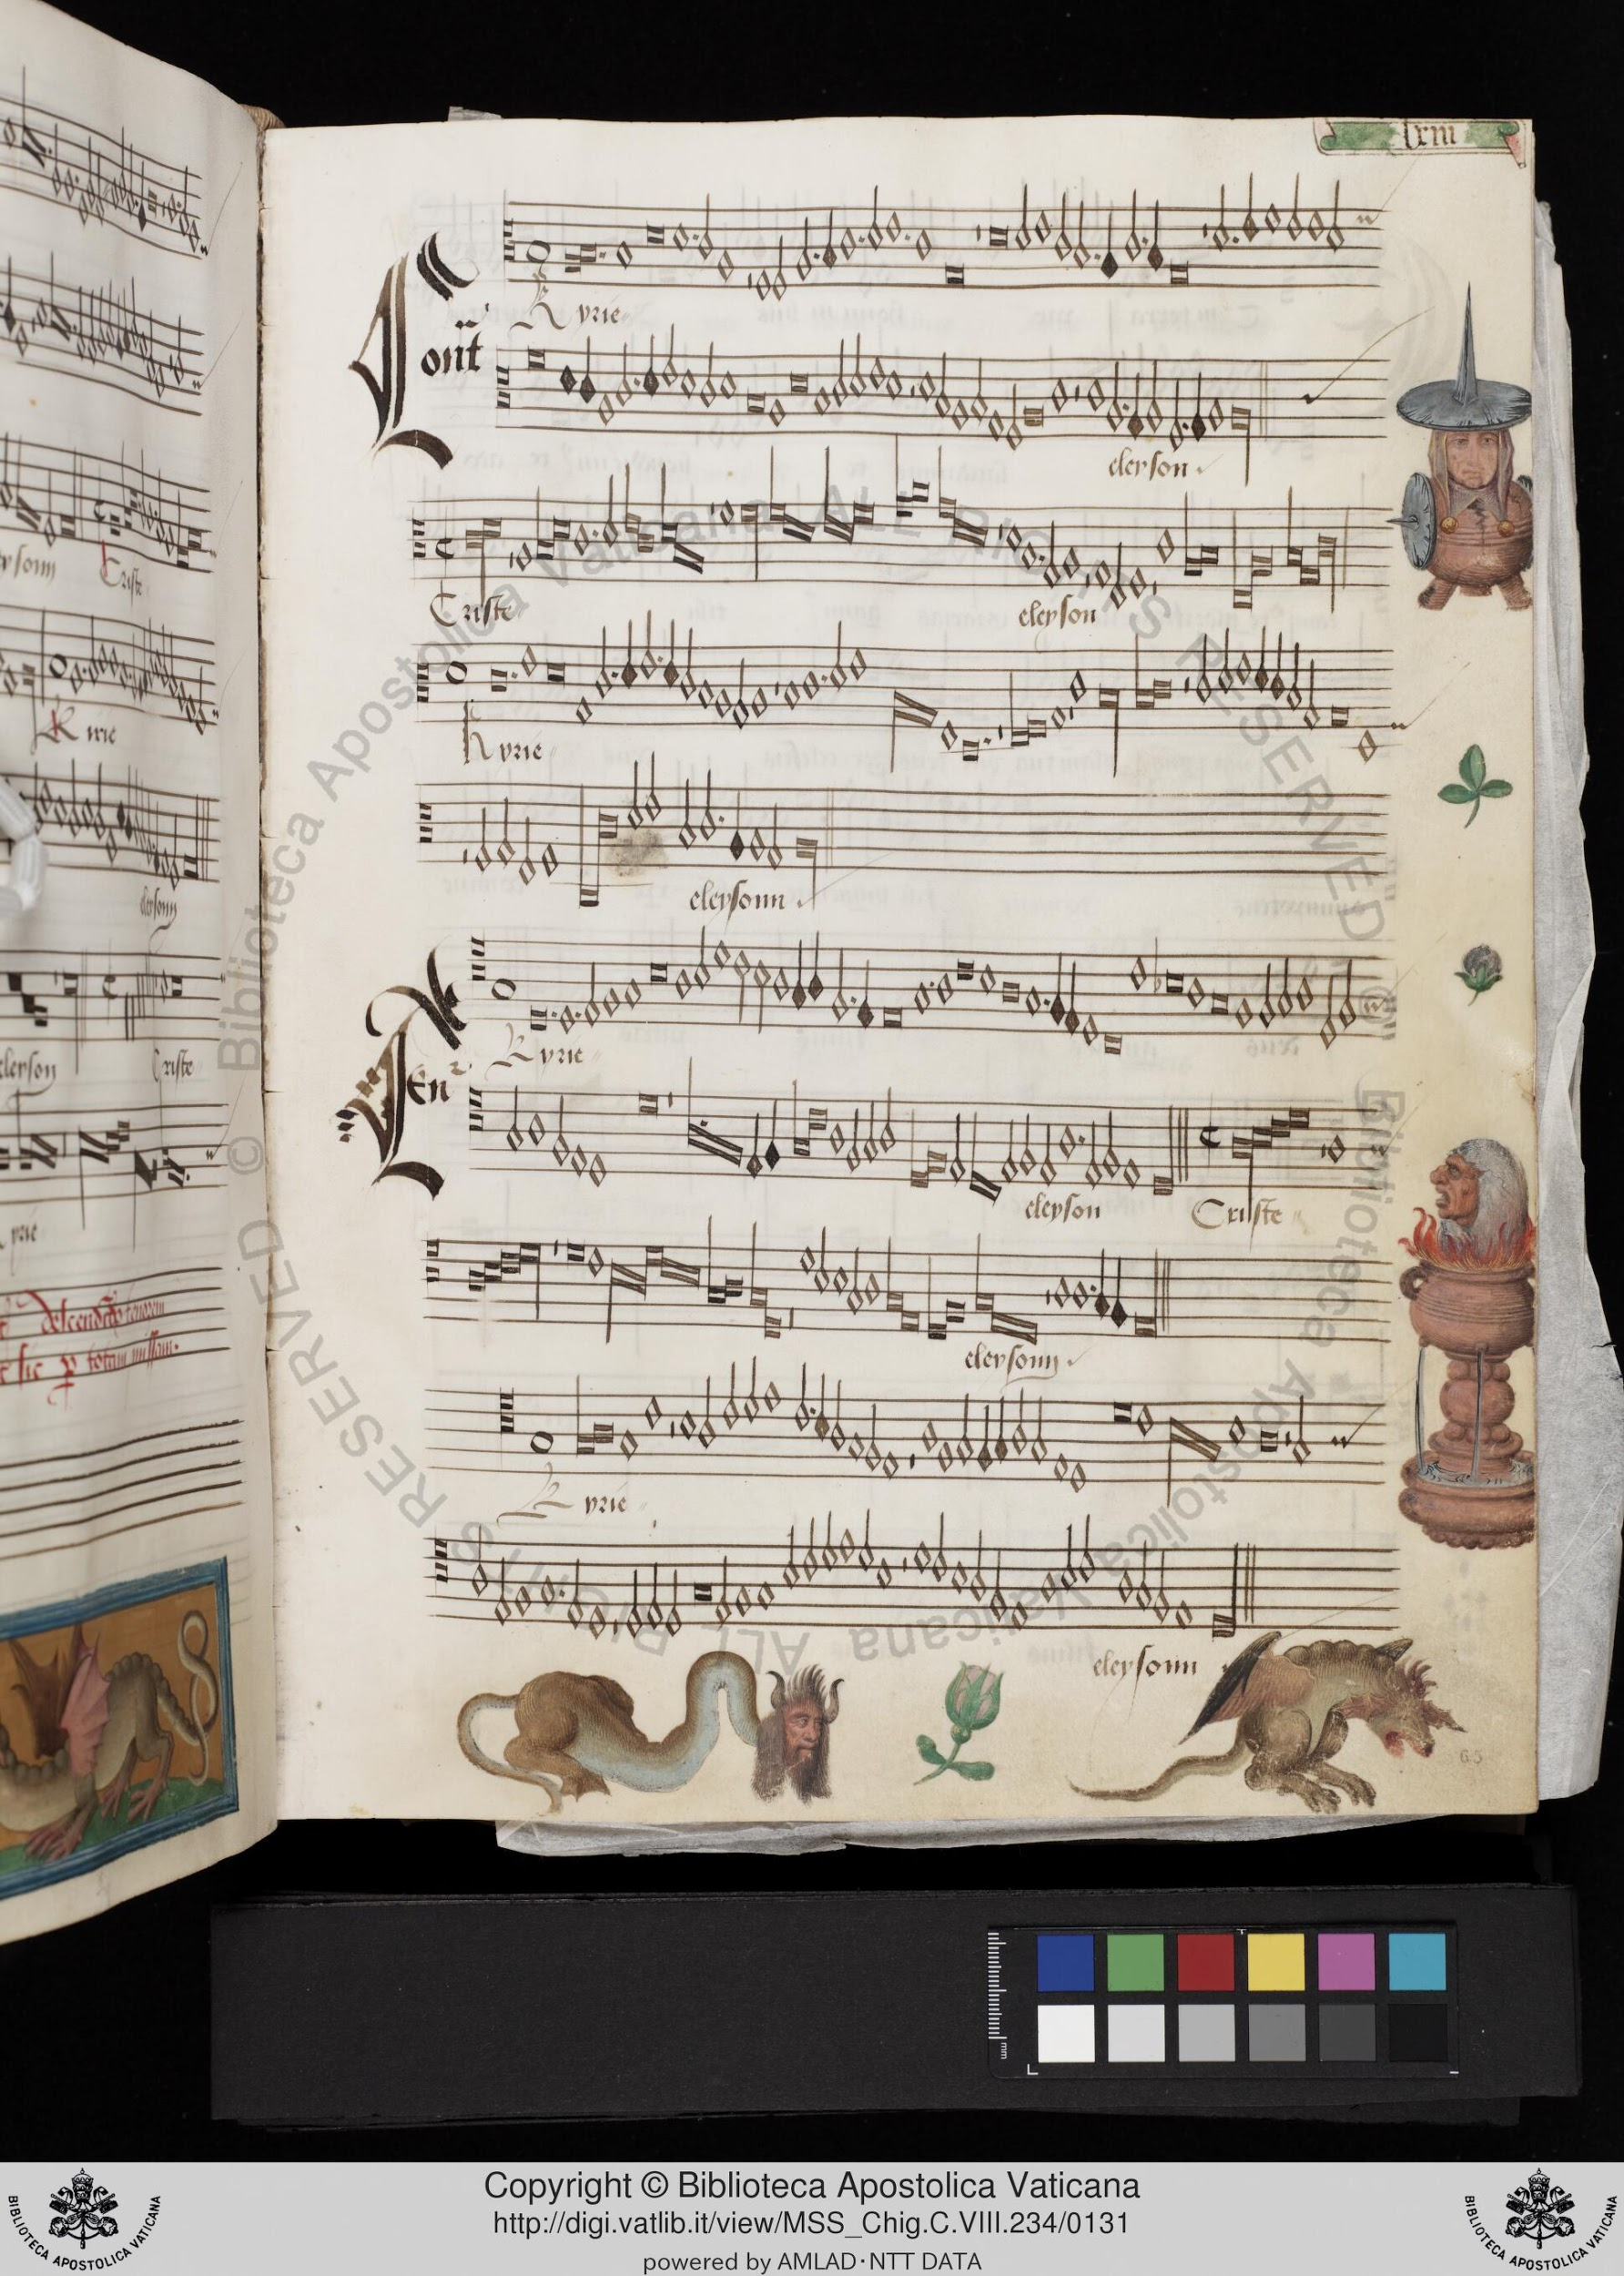 lxiii
Kyrie
Contra
eleyson
Criste
eleyson
Kyrie
eleysonn
Kyrie
Ten
eleyson
Criste
eleysonn
Kyrie
eleysonn
65
eysonn
Criste
Kirie
eleysonn
eleyson
Criste
yrie
totam missam
© Biblioteca Apostolica Vaticana ALL RIGHTS RESERVED
mm
Copyright © Biblioteca Apostolica Vaticana
http://digi.vatlib.it/view/MSS_Chig.C.VIII.234/0131
powered by AMLAD·NTT DATA
BIBLIOTECA APOSTOLICA VATICANA
BIBLIOTECA APOSTOLICA VATICANA